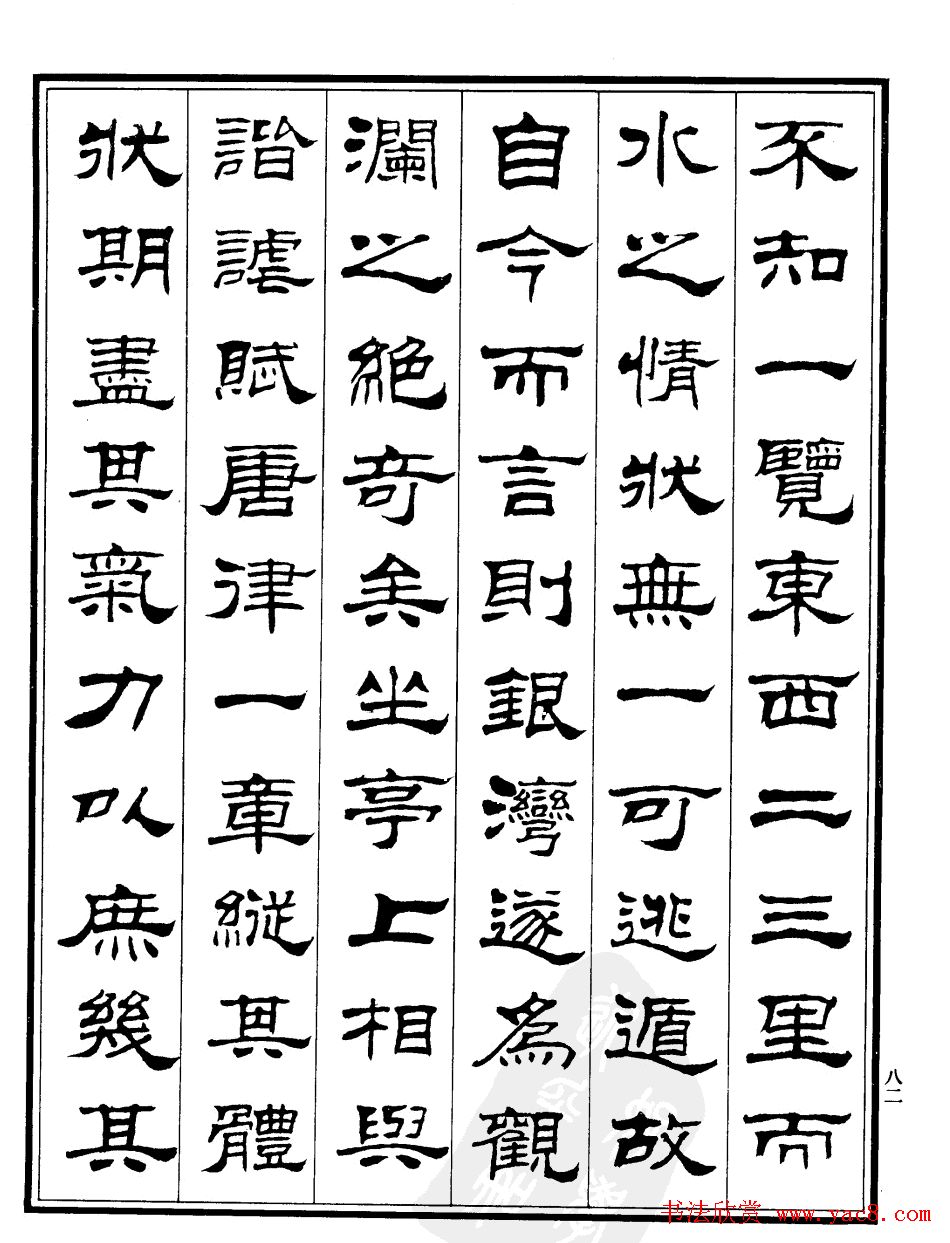 不知一覽東西二三里而
水之情狀無一可逃遁故
自今而言則銀灣遂為觀
瀾之絕奇矣坐亭上相與
諧謔賦唐律一章縱其體
狀期盡其氣力以庶幾其
八二
书法欣赏 www.yac8.com